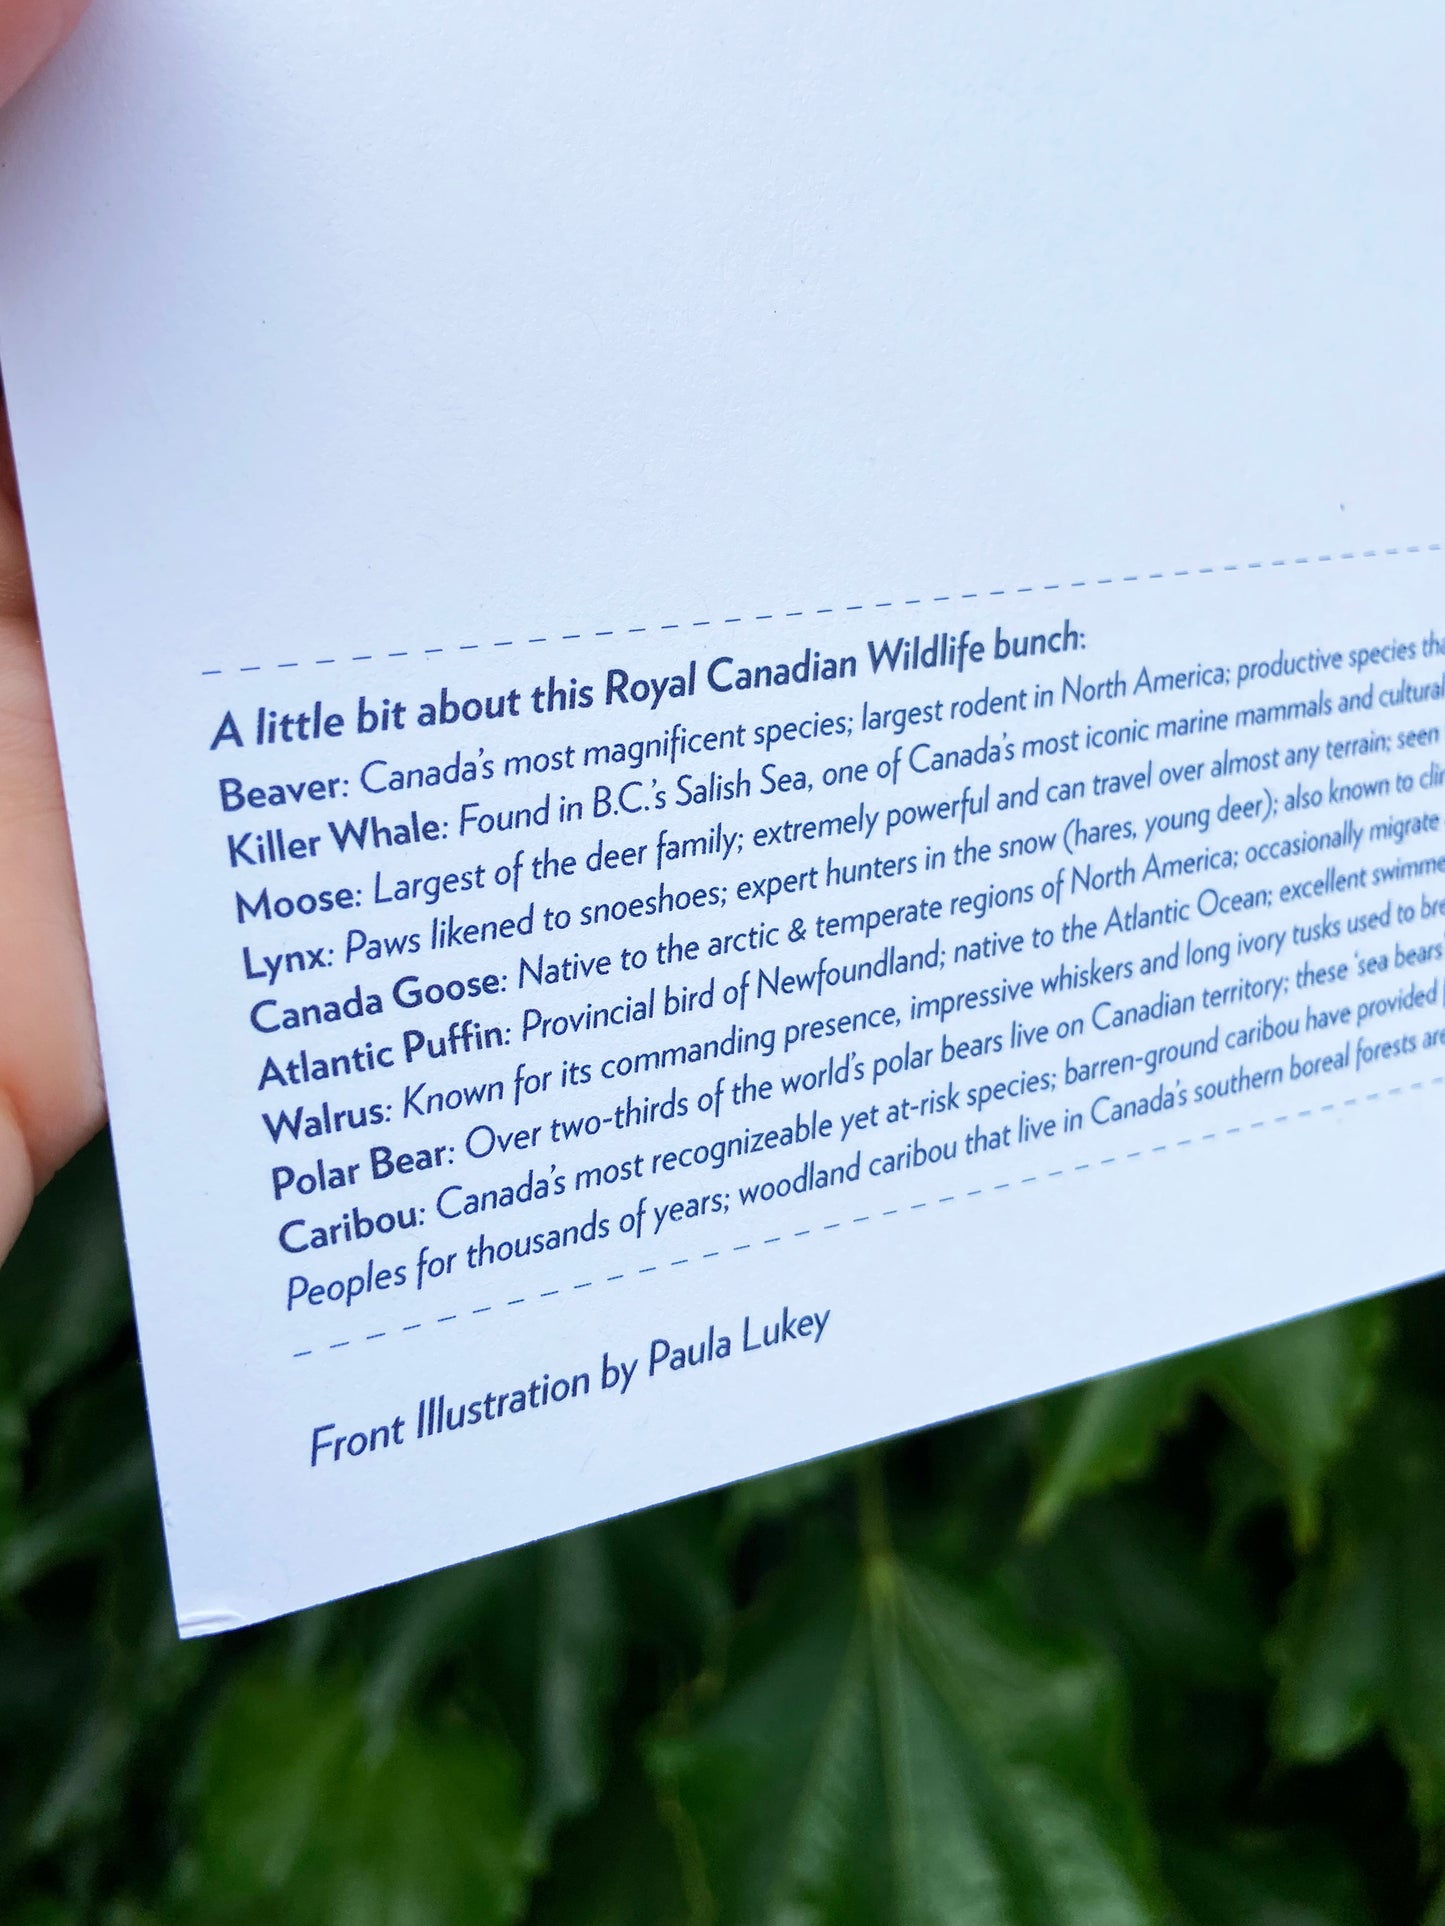 A little bit about this Royal Canadian Wildlife bunch:
Beaver: Canada's most magnificent species; largest rodent in North America; productive species
Killer Whale: Found in B.C.'s Salish Sea, one of Canada's most iconic marine mammals and
Moose: Largest of the deer family; extremely powerful and can travel over almost any terrain; seen
Lynx: Paws likened to snoeshoes; expert hunters in the snow (hares, young deer); also known to
Canada Goose: Native to the arctic & temperate regions of North America; occasionally migrate
Atlantic Puffin: Provincial bird of Newfoundland; native to the Atlantic Ocean; excellent
Walrus: Known for its commanding presence, impressive whiskers and long ivory tusks used to
Polar Bear: Over two-thirds of the world's polar bears live on Canadian territory; these 'sea bears'
Caribou: Canada's most recognizeable yet at-risk species; barren-ground caribou have provided
Peoples for thousands of years; woodland caribou that live in Canada's southern boreal forests are
Front Illustration by Paula Lukey